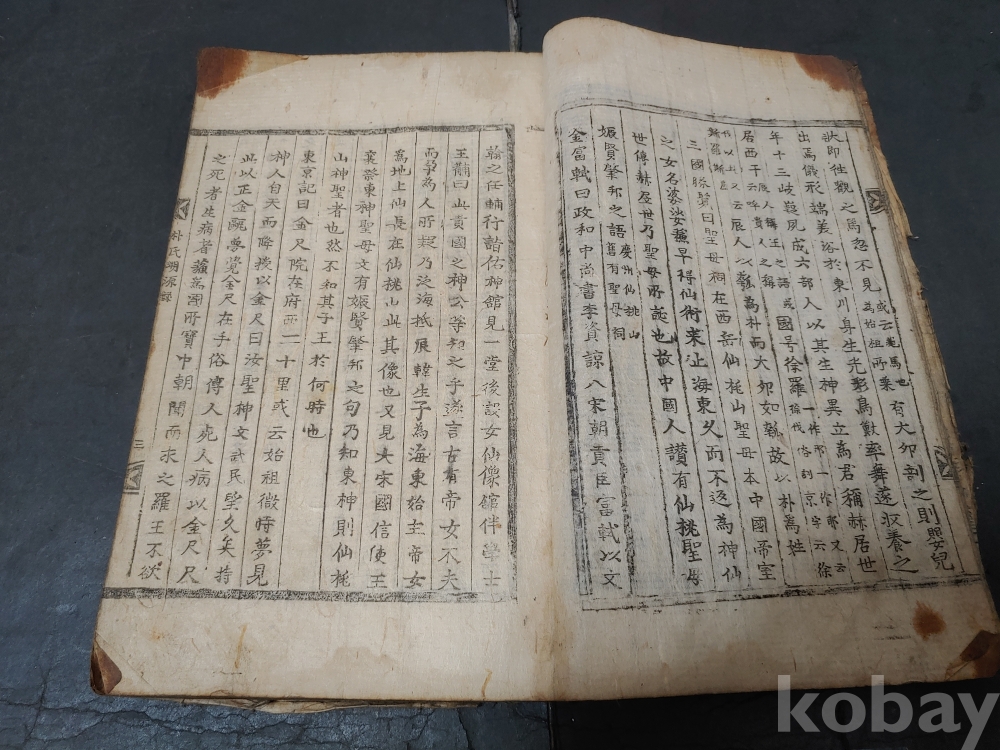 欲即徃觀之馬忽不見 或云龍馬也為始祖所乘 有大卵剖之則嬰兒
出焉儀形端美浴於東川身生光彩鳥獸率舞遂収養之
年十三岐嶷夙成六部人以其生神異立為君稱赫居世
辰人稱王之語 國号徐羅 一作 徐伐 俗訓京字云徐
居西干云呼貴人之稱 辰人以瓠為朴而大卵如瓠故以朴為姓
三國 曰聖母祠在西岳仙桃山聖母本中國帝室
之女名婆娑蘇早得仙術来止海東久而不返為神仙
世傳赫居世乃聖母所誕也故中國人讃有仙桃聖母
娠賢肇邦之語 慶州仙桃山舊有聖母祠
金富軾曰政和中尚書李資諒入宋朝貢臣富軾以文
翰之任輔行詣佑神舘見一堂後設女仙像舘伴學士
王黼曰此貴國之神公等知之乎遂言古有帝女不夫
而孕為人所疑乃泛海抵辰韓生子為海東始主帝女
為地上仙長在仙桃山此其像也又見大宋國信使王
襄祭東神聖母文有娠賢肇邦之句乃知東神則仙桃
山神聖者也然不知其子王於何時也
東京記曰金尺院在府西二十里或云始祖微時夢見
神人自天而降授以金尺曰汝聖神文武民望久矣持
此以正金甌夢覺金尺在手俗傳人死人病以金尺尺
之死者生病者蘓為國所寶中朝聞而求之羅王不欲
朴氏 源錄
三
kobay